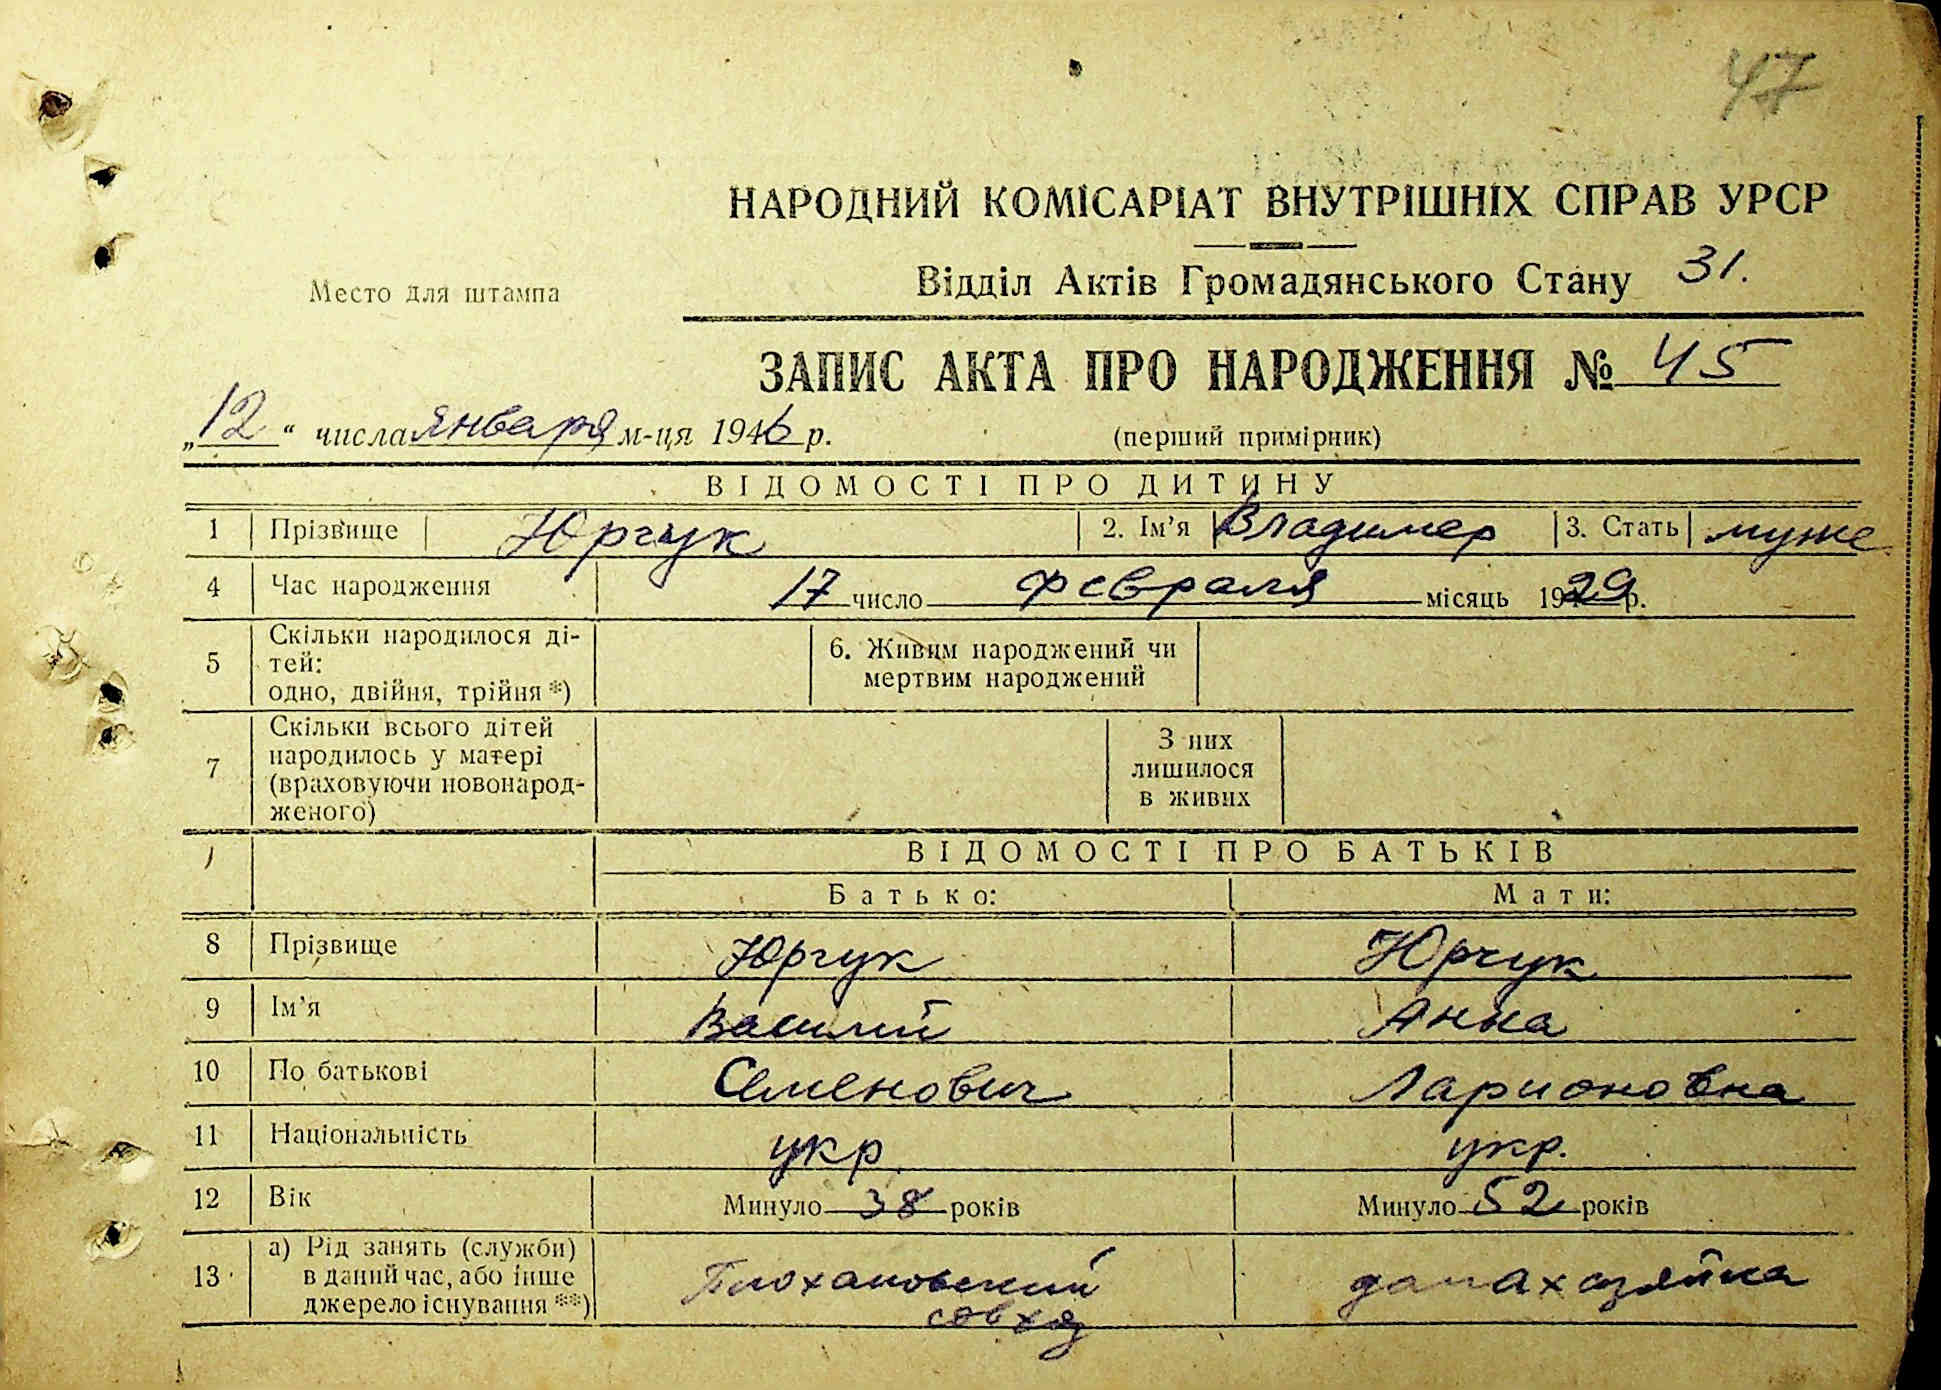 47
НАРОДНИЙ КОМІСАРІАТ ВНУТРІШНІХ СПРАВ УРСР
Место для штампа
Відділ Актів Громадянського Стану 31.
ЗАПИС АКТА ПРО НАРОДЖЕННЯ № 45
„12“ числа января м-ця 1946 р. (перший примірник)
ВІДОМОСТІ ПРО ДИТИНУ
1 Прізвище Юрчук 2. Ім’я Владимер 3. Стать муже
4 Час народження 17 число февраля місяць 1929 р.
5 Скільки народилося ді-
тей:
одно, двійня, трійня *)
6. Живим народжений чи
мертвим народжений
7 Скільки всього дітей
народилось у матері
(враховуючи новонарод-
женого)
З них
лишилося
в живих
ВІДОМОСТІ ПРО БАТЬКІВ
Батько: Мати:
8 Прізвище Юрчук Юрчук
9 Ім’я Василий Анна
10 По батькові Семенович Ларионовна
11 Національність укр. укр.
12 Вік Минуло 38 років Минуло 52 років
13 а) Рід занять (служби)
в даний час, або інше
джерело існування **)
совхоз
домахозяйка